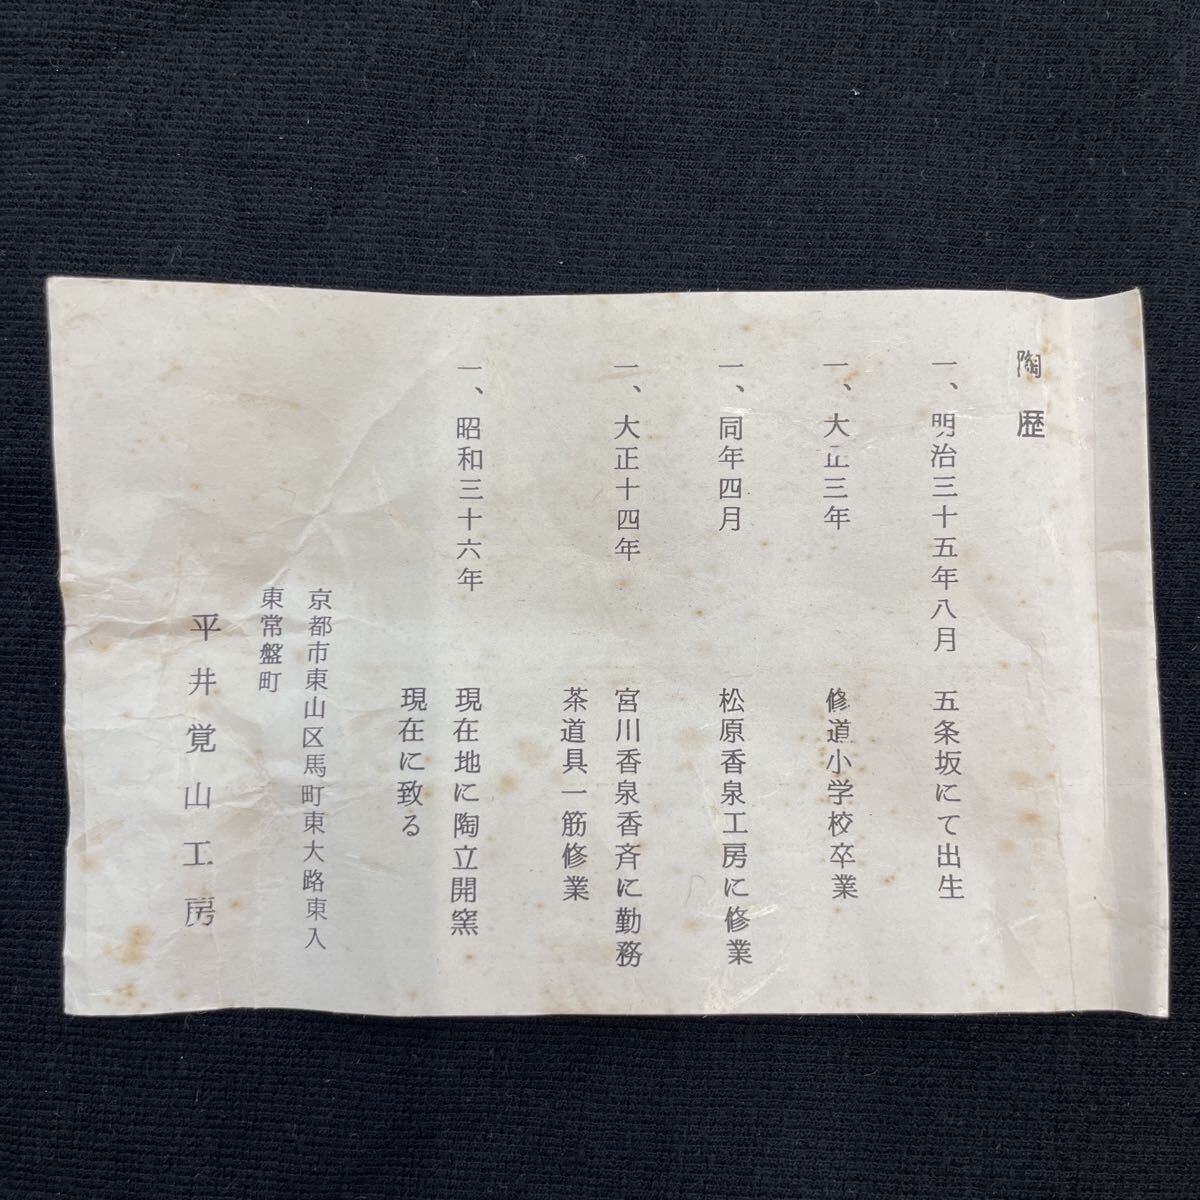 陶歴
一、明治三十五年八月　五条坂にて出生
一、大正三年　修道小学校卒業
一、同年四月　松原香泉工房に修業
一、大正十四年　宮川香泉香斉に勤務
茶道具一筋修業
一、昭和三十六年　現在地に陶立開窯
現在に致る
京都市東山区馬町東大路東入
東常盤町
平井覚山工房